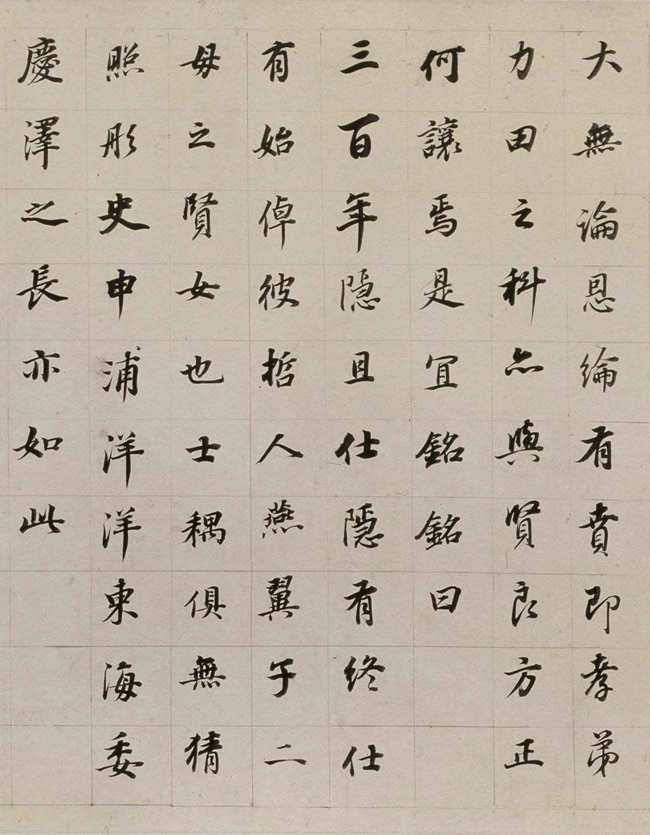 大無論恩綸有賁即孝弟
力田之科亦與賢良方正
何讓焉是宜銘銘曰
三百年隱且仕隱有終仕
有始倬彼哲人燕翼子二
母之賢女也士耦俱無猜
照彤史申浦洋洋東海委
慶澤之長亦如此